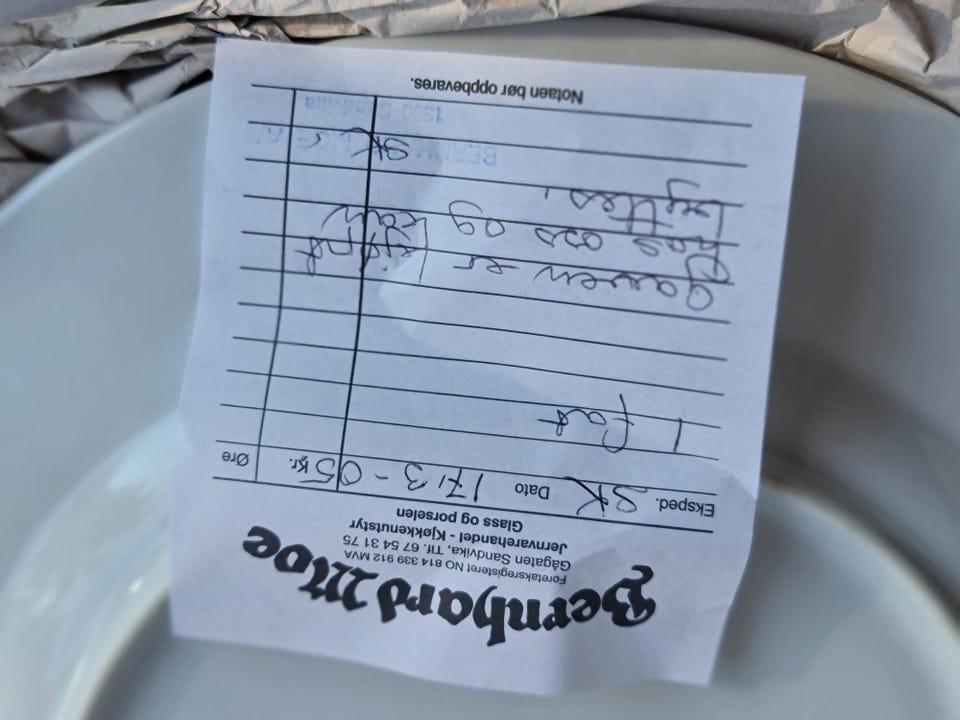 Bernhard Moe
Foretaksregisteret NO 814 339 912 MVA
Gågaten Sandvika, Tlf. 67 54 31 75
Jernvarehandel - Kjøkkenutstyr
Glass og porselen
Eksped. SK Dato 17,3-05 Kr. Øre
1 fat
Gaven er kjøpt
hos oss og kan
byttes.
SK
1300 Sandvika
Notaen bør oppbevares.